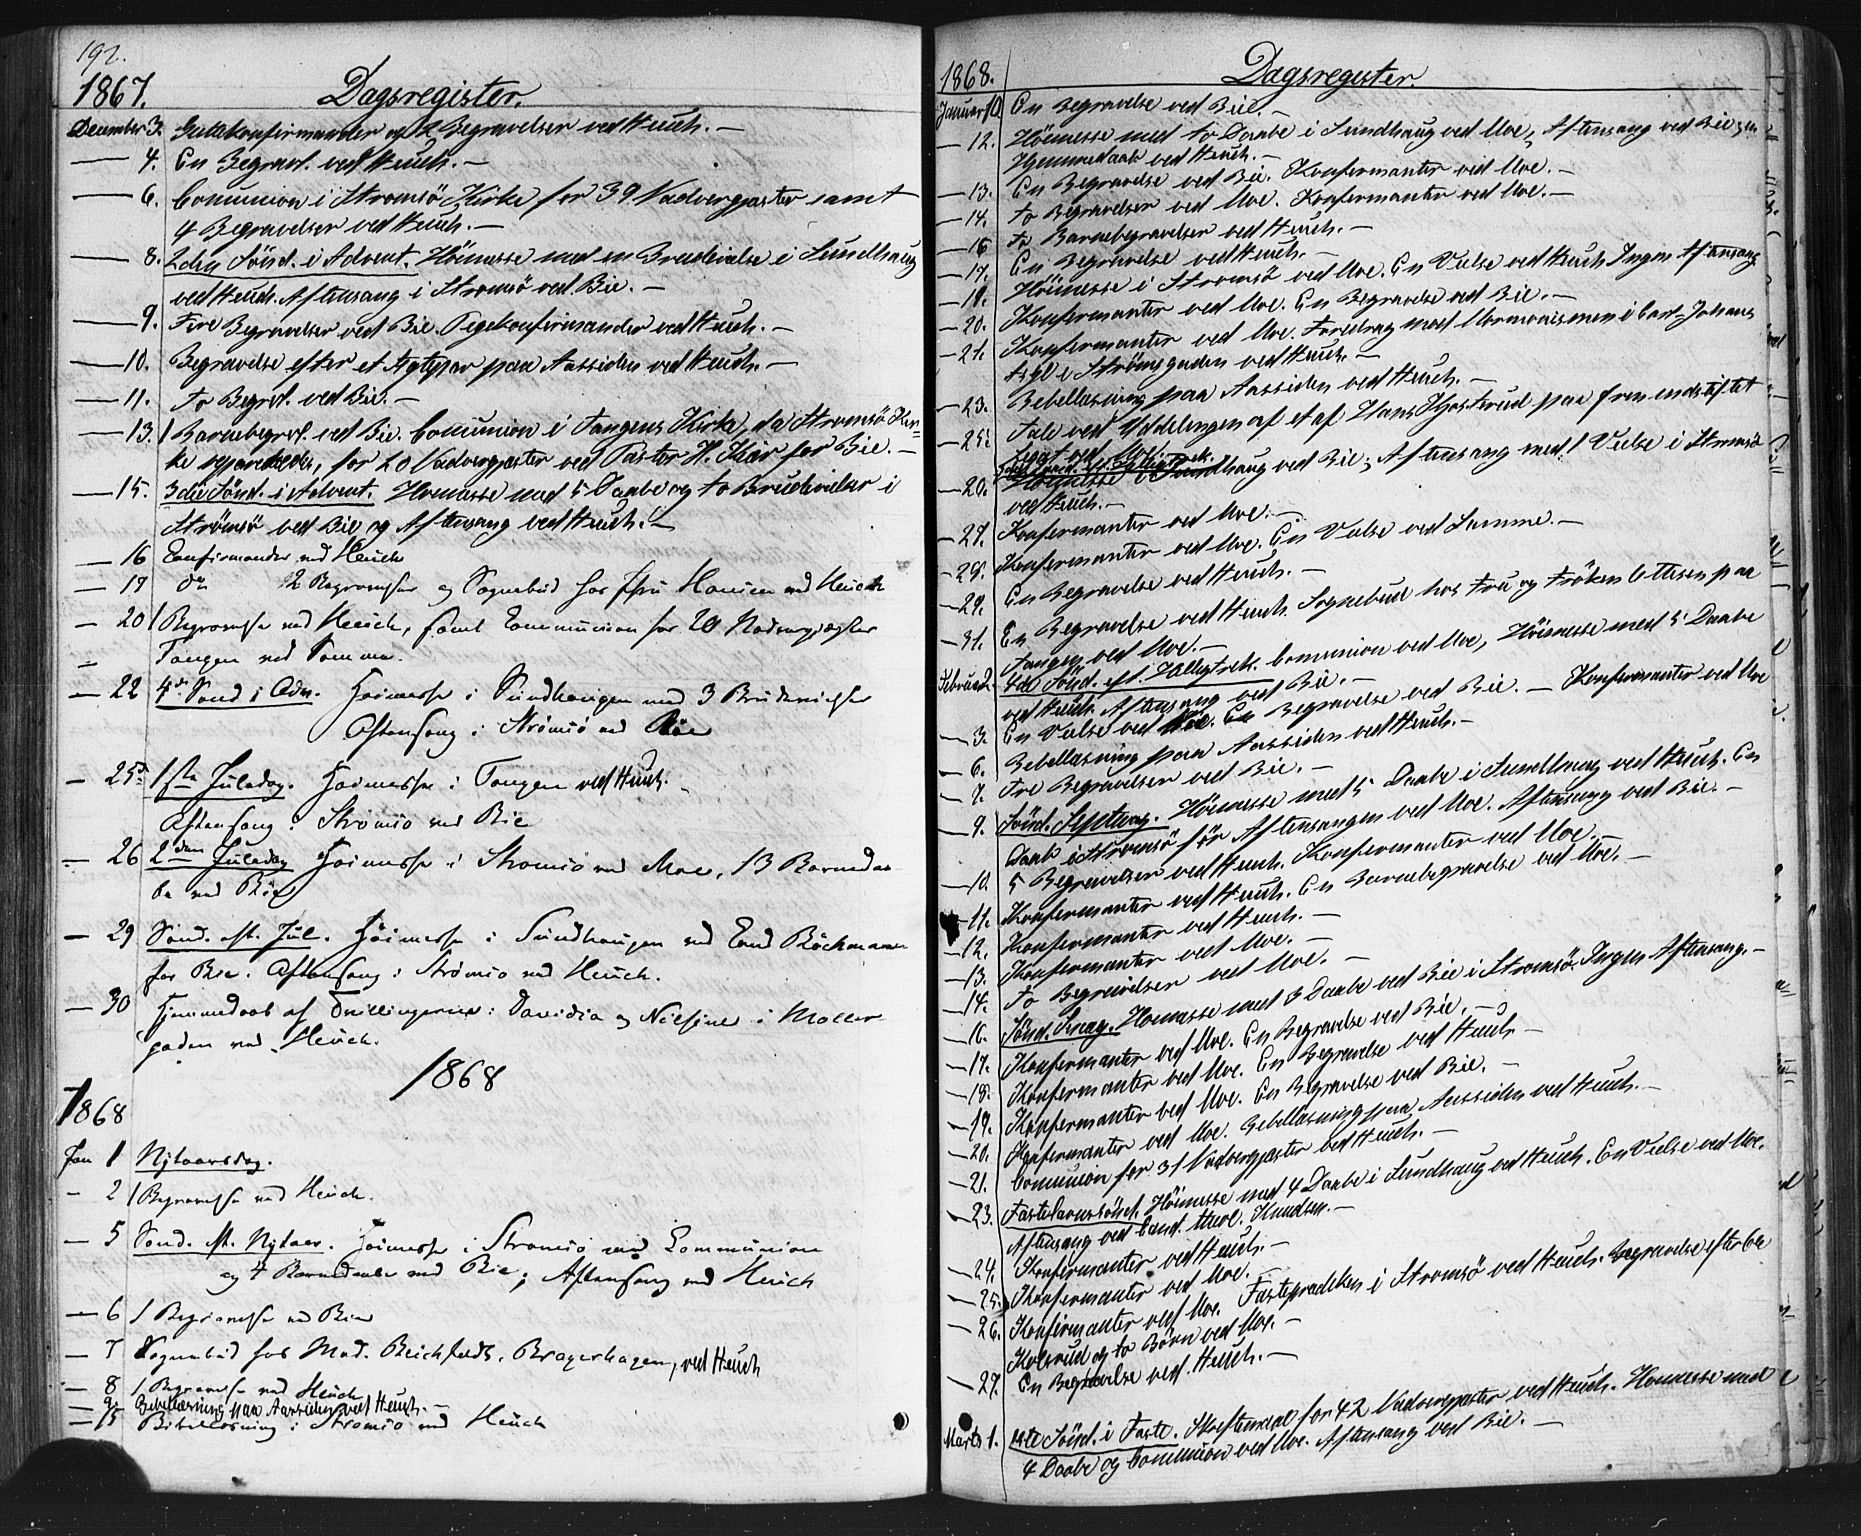 192.
1867. Dagsregister.
December 3. Guttekonfirmander og 2 Begravelser ved Heuch. —
— 4. En Begravl. ved Heuch. —
— 6. Comunion i Stromsö Kirke for 39 Nadvergjæster samt
4 Begravelser ved Heuch. —
— 8. 2den Sönd. i Advent. Höimesse med en Brudevielse i Sundhaug
ved Heuch. Aftensang i Stromsö ved Bie. —
— 9. Fire Begravelser ved Bie. Pigekonfirmander ved Heuch. —
— 10. Begravelse efter et Ægtepar paa Aassiden ved Heuch. —
— 11. To Begrvl. ved Bie. —
— 13. 1 Barnebegrvl. ved Bie. Comunion i Tangens Kirke, da Stromsö Kir-
ke repareredes, for 20 Nadvergjæster ved Pastor H. Kiær for Bie. —
— 15. 3die Sönd. i Advent. Höimesse med 5 Daabe og to Brudevielser i
Strömsö ved Bie og Aftensang ved Heuch. —
— 16 Confirmander ved Heuch
— 17 do 2 Begravelser og Sognebud hos Fru Hansen ved Heuch
— 20 1 Begravelse ved Heuch, samt Communion for 20 Nadvergjæster
Tangen ved Somme.
— 22 4de Sönd i Adv. Hoimesse i Sundhaugen med 3 Brudevielser
Aftensang i Strömsö ved Bie
— 25 1ste Juledag. Hoimesse i Tangen ved Heuch. —
Aftensang i Strömsö ved Bie
— 26 2den Juledag Hoimesse i Stromsö ved Moe, 13 Barnedaa-
be ved Bie
— 29 Sönd. eft. Jul. Höimesse i Sundhaugen ved Cand Böckmann
for Bie. Aftensang i Strömsö ved Heuch.
— 30 Hjemmedaab af Trillingerne: Davidia og Nilsine i Moller
gaden ved Heuch.
1868
1868
Jan 1 Nytaarsdag.
— 2 1 Begravelse ved Heuch.
— 5 Sönd. eft. Nytaar. Hoimesse i Stromsö med Communion
og 4 Barnedaabe ved Bie; Aftensang ved Heuch
— 6 1 Begravelse ved Bie
— 7 Sognebud hos Mad. Beichfeldt, Bragerhagen, ved Heuch
— 8 1 Begravelse ved Heuch
— 9. Bibellæsning paa Aassiden ved Heuch. —
— 15 Bibellæsning i Stromsö ved Heuch
1868. Dagsregister.
Januar 10. En Begravelse ved Bie. —
— 12. Höimesse med to Daabe i Sundhaug ved Moe, Aftensang ved Bie, en
Hjemmedaab ved Heuch. —
— 13. En Begravelse ved Bie. Konfermanter ved Moe. —
— 14. To Begravelser ved Moe. Konfermanter ved Moe. —
— 16 To Barnebegravelser ved Heuch. —
— 17. En Begravelse ved Heuch. —
— 19. Höimesse i Stromsö ved Moe. En Vielse ved Heuch. Ingen Aftensang
— 20. Konfermanter ved Moe. En Begravelse ved Bie. —
— 21. Konfermanter ved Moe. Foredrag mod Mormonismen i Carl-Johans
ved Heuch. —
— 23. Bibellæsning paa Aassiden ved Heuch. —
— 25. Tale ved Uddelingen af et af Hans Kjosterud paa frem endstiftet
Legat ved Moe.
— 26. Höimesse i Sundhaug ved Bie, Aftensang med 1 Vielse i Stromsö
ved Heuch. —
— 27. Konfermanter ved Moe. —
— 28. Konfermanter ved Moe. En Vielse ved Somme. —
— 29. En Begravelse ved Heuch. —
— 31. En Begravelse ved Heuch. Sognebud hos Fru og Fröken Ottesen paa
Tangen ved Moe. —
Februar 2. 4de Sönd. eft. Helligtrek. Comunion ved Moe, Höimesse med 5 Daabe
ved Heuch. Aftensang ved Bie. —
— 3. En Vielse ved Moe. En Begravelse ved Bie. — Konfermanter ved Moe
— 6. Bibellæsning paa Aassiden ved Heuch. —
— 7. Tre Begravelser ved Bie. —
— 9. Sönd. Septuag. Höimesse med 5 Daabe i Sundhaug ved Heuch. En
Daab i Stromsö för Aftensangen ved Moe. Aftensang ved Bie. —
— 10. 5 Begravelser ved Heuch. Konfermanter ved Moe.
— 11. Konfermanter ved Heuch. En Barnebegravelse ved Moe. —
— 12. Konfermanter ved Heuch. —
— 13. Konfermanter ved Moe. —
— 14. To Begravelser ved Moe. —
— 16. Sönd. Sexag. Höimesse med 3 Daabe ved Bie i Stromsö. Ingen Aftensang. —
— 17. Konfermanter ved Moe. En Begravelse ved Bie. —
— 18. Konfermanter ved Moe. En Begravelse ved Heuch —
— 19. Konfermanter ved Moe. En Begravelse ved Bie. —
— 20. Konfermanter ved Moe. Bibellæsning paa Aassiden ved Heuch. —
— 21. Comunion for 31 Nadvergjæster ved Heuch. —
— 23. Fastelavnssönd. Höimesse med 4 Daabe i Sundhaug ved Heuch. En Vielse ved Moe.
Aftensang ved Cand. theol. Knudsen. —
— 24. Konfermanter ved Heuch. —
— 25. Konfermanter ved Moe. —
— 26. Konfirmanter ved Moe. Fasteprædiken i Stromsö ved Heuch. Begravelse efter Ole
Kolsrud og to Börn ved Moe. —
— 27. En Begravelse ved Heuch. —
Marts 1. 1ste Sönd. i Faste. Skriftemaal for 42 Nadvergjæster ved Heuch. Höimesse med
4 Daabe og Comunion ved Moe. Aftensang ved Bie. —